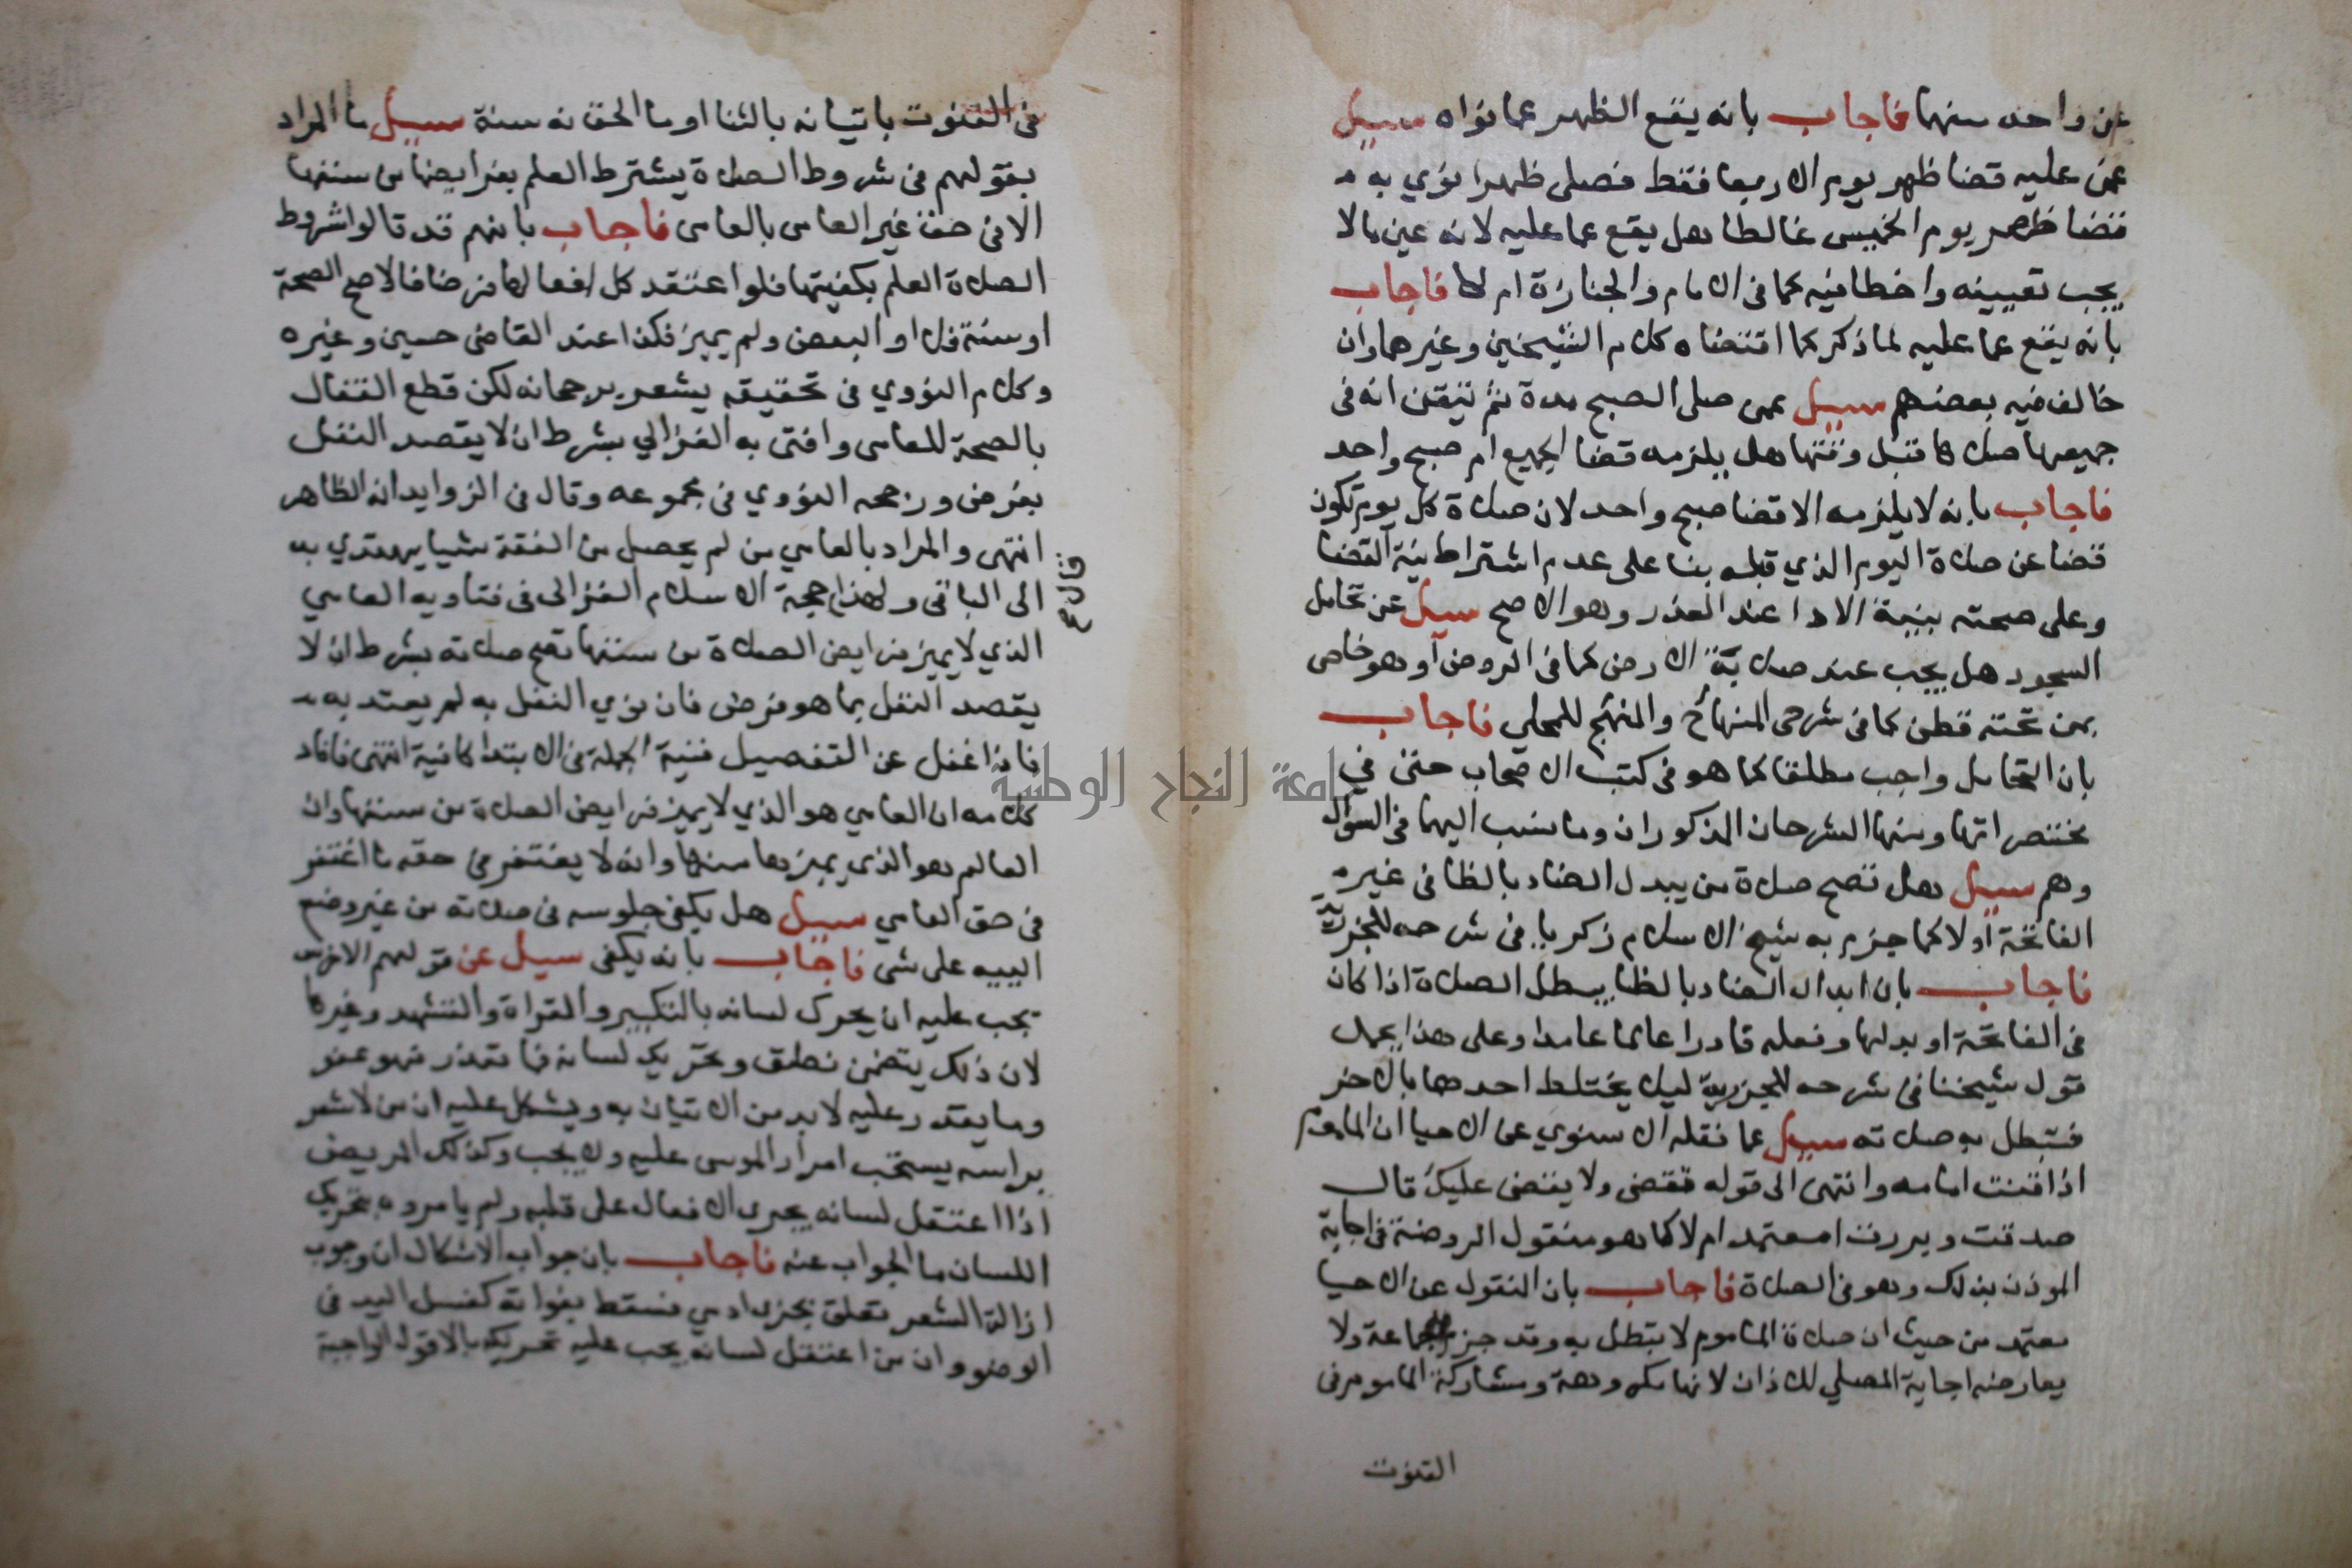 عن واحده منها فاجاب بانه يقع الظهر عما نواه سيل
عمن عليه قضا ظهر يوم الاربعا فقط فصلى ظهرا نوي به
قضا ظهر يوم الخميس غالطا هل يقع عما عليه لانه عين ما لا
يجب تعيينه واخطا فيه كما في الامام والجنازة ام لا فاجاب
بانه يقع عما عليه لما ذكر كما اقتضاه كلام الشيخين وغيرهما وان
خالف فيه بعضهم سيل عمن صلى الصبح مدة ثم تيقن انه في
جميعها صلاها قبل وقتها هل يلزمه قضا الجميع ام صبح واحد
فاجاب بانه لا يلزمه الا قضا صبح واحد لان صلاة كل يوم تكون
قضا عن صلاة اليوم الذي قبله بنا على عدم اشتراط نية القضا
وعلى صحته بنية الادا عند العذر وهو الاصح سيل عن تحامل
السجود هل يجب عند صلابة الارض كما في الروض او هو خاص
بمن تحته قطن كما في شرحى المنهاج والمنهج للمحلى فاجاب
بان التحامل واجب مطلقا كما هو في كتب الاصحاب حتى في
مختصراتها ومنها الشرحان المذكوران وما نسب اليهما في السؤال
وهم سيل هل تصح صلاة من يبدل الضاد بالظا في غير
الفاتحة او لا كما جزم به شيخ الاسلام زكريا في شرحه للجزرية
فاجاب بان ابدال الضاد بالظا يبطل الصلاة اذا كان
في الفاتحة او بدلها وفعله قادرا عالما عامدا وعلى هذا يحمل
قول شيخنا في شرحه للجزرية ليلا يختلط احدهما بالاخر
فتبطل به صلاته سيل عما نقله الاسنوي عن الاحيا ان الماموم
اذا قنت امامه وانتهى الى قوله فقضى ولا يقضى عليك قال
صدقت وبررت امعتمد ام لا كما هو منقول الروضة في اجابة
الموذن بذلك وهو في الصلاة فاجاب بان النقول عن الاحيا
معتمد من حيث ان صلاة الماموم لا تبطل به وقد جزم جماعة ولا
يعارضه اجابة المصلي للاذان لانها مكروهة ومشاركة الماموم في
القنوت
في القنوت باتيانه بالثنا او ما الحق به سنة سيل ما المراد
بقولهم في شروط الصلاة يشترط العلم بفرايضها من سننها
الا في حق غير العامى بالعامى فاجاب بانهم قد قالوا شروط
الصلاة العلم بكفيتها فلو اعتقد كل افعالها فرضا فالاصح الصحة
او سنة فلا او البعض ولم يميز فكذا عند القاضى حسين وغيره
وكلام النووي في تحقيقه يشعر برجحانه لكن قطع القفال
بالصحة للعامى وافتى به الغزالي بشرط ان لا يقصد النفل
بفرض ورجحه النووي في مجموعه وقال في الزوايد انه الظاهر
انتهى والمراد بالعامي من لم يحصل من الفقة شيا يهتدي به
الى الباقى ولهذا حجة الاسلام الغزالى في فتاويه العامي
قال ع
الذي لا يميز فرايض الصلاة من سننها تصح صلاته بشرط ان لا
يقصد النفل بما هو فرض فان نوي النفل به لم يعتد به
فاذا غفل عن التفصيل فنية الجملة في الابتدا كافية انتهى فافاد
كلامه ان العامي هو الذي لا يميز فرايض الصلاة من سننها وان
العالم هو الذي يميزها منها وانه لا يغتفر في حقه ما اغتفر
في حق العامي سيل هل يكفى جلوسه في صلاته من غير وضع
اليبيه على شى فاجاب بانه يكفى سيل عن قولهم الاخرس
يجب عليه ان يحرك لسانه بالتكبير والقراة والتشهد وغيرها
لان ذلك يتضمن نطق وتحريك لسانه فما تعذر فهو عفو
وما يقدر عليه لا بد من الاتيان به ويشكل عليه ان من لا شعر
براسه يستحب امرار الموسى عليه ولا يجب وكذلك المريض
اذا اعتقل لسانه يجري الافعال على قلبه ولم يامروه بتحريك
اللسان ما الجواب عنه فاجاب بان جواب الاشكال ان وجوب
ازالة الشعر تعلق بجزء ادمي فسقط بفواته كغسل اليد في
الوضوء وان من اعتقل لسانه يجب عليه تحريكه بالاقول الواجبة
جامعة النجاح الوطنية